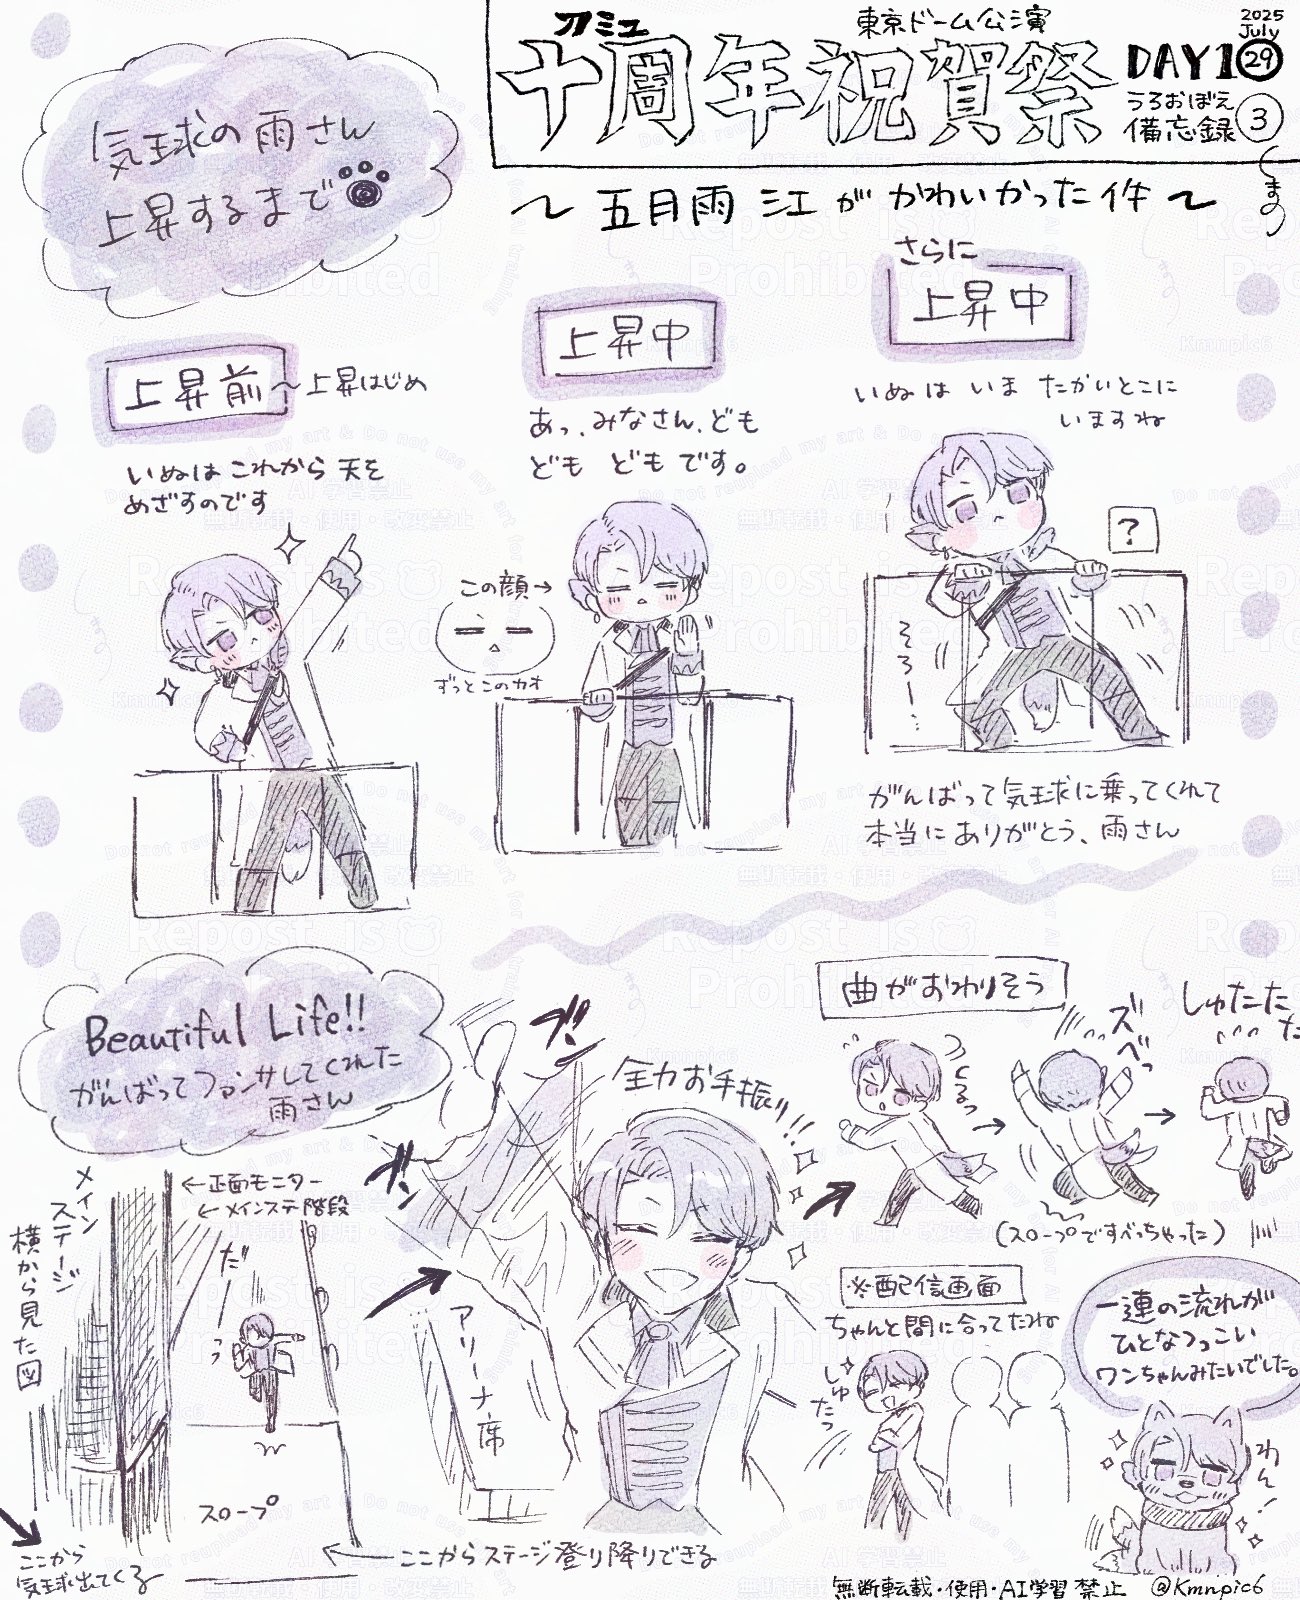 刀ミュ
東京ドーム公演
十周年祝賀祭
DAY1
2025
July
29
うろおぼえ
備忘録 3
(まの)
〜五月雨 江が かわいかった件〜
気球の雨さん
上昇するまで
上昇前〜上昇はじめ
いぬは これから 天を
めざすのです
上昇中
あっ、みなさん、ども
ども ども です。
この顔→
ずっとこのカオ
さらに
上昇中
いぬは いま たかいとこに
いますね
?
そろー…
がんばって気球に乗ってくれて
本当にありがとう、雨さん
Beautiful Life!!
がんばってファンサしてくれた
雨さん
メイン
ステージ
横から見た図
←正面モニター
←メインステ階段
だっ
スロープ
ここから
気球出てくる
←ここからステージ登り降りできる
アリーナ席
ブ!!
ブ!
全力お手振り!!
曲がおわりそう
くるっ
→
ズベっ
→
しゅたたた
(スロープですべっちゃった)
※配信画面
ちゃんと間に合ってたね
しゅたっ
一連の流れが
ひとなつっこい
ワンちゃんみたいでした。
わん!
無断転載・使用・AI学習 禁止 @Kmnpic6
Repost is
Prohibited
AI 学習禁止
無断転載・使用・改変禁止
Kmnpic6